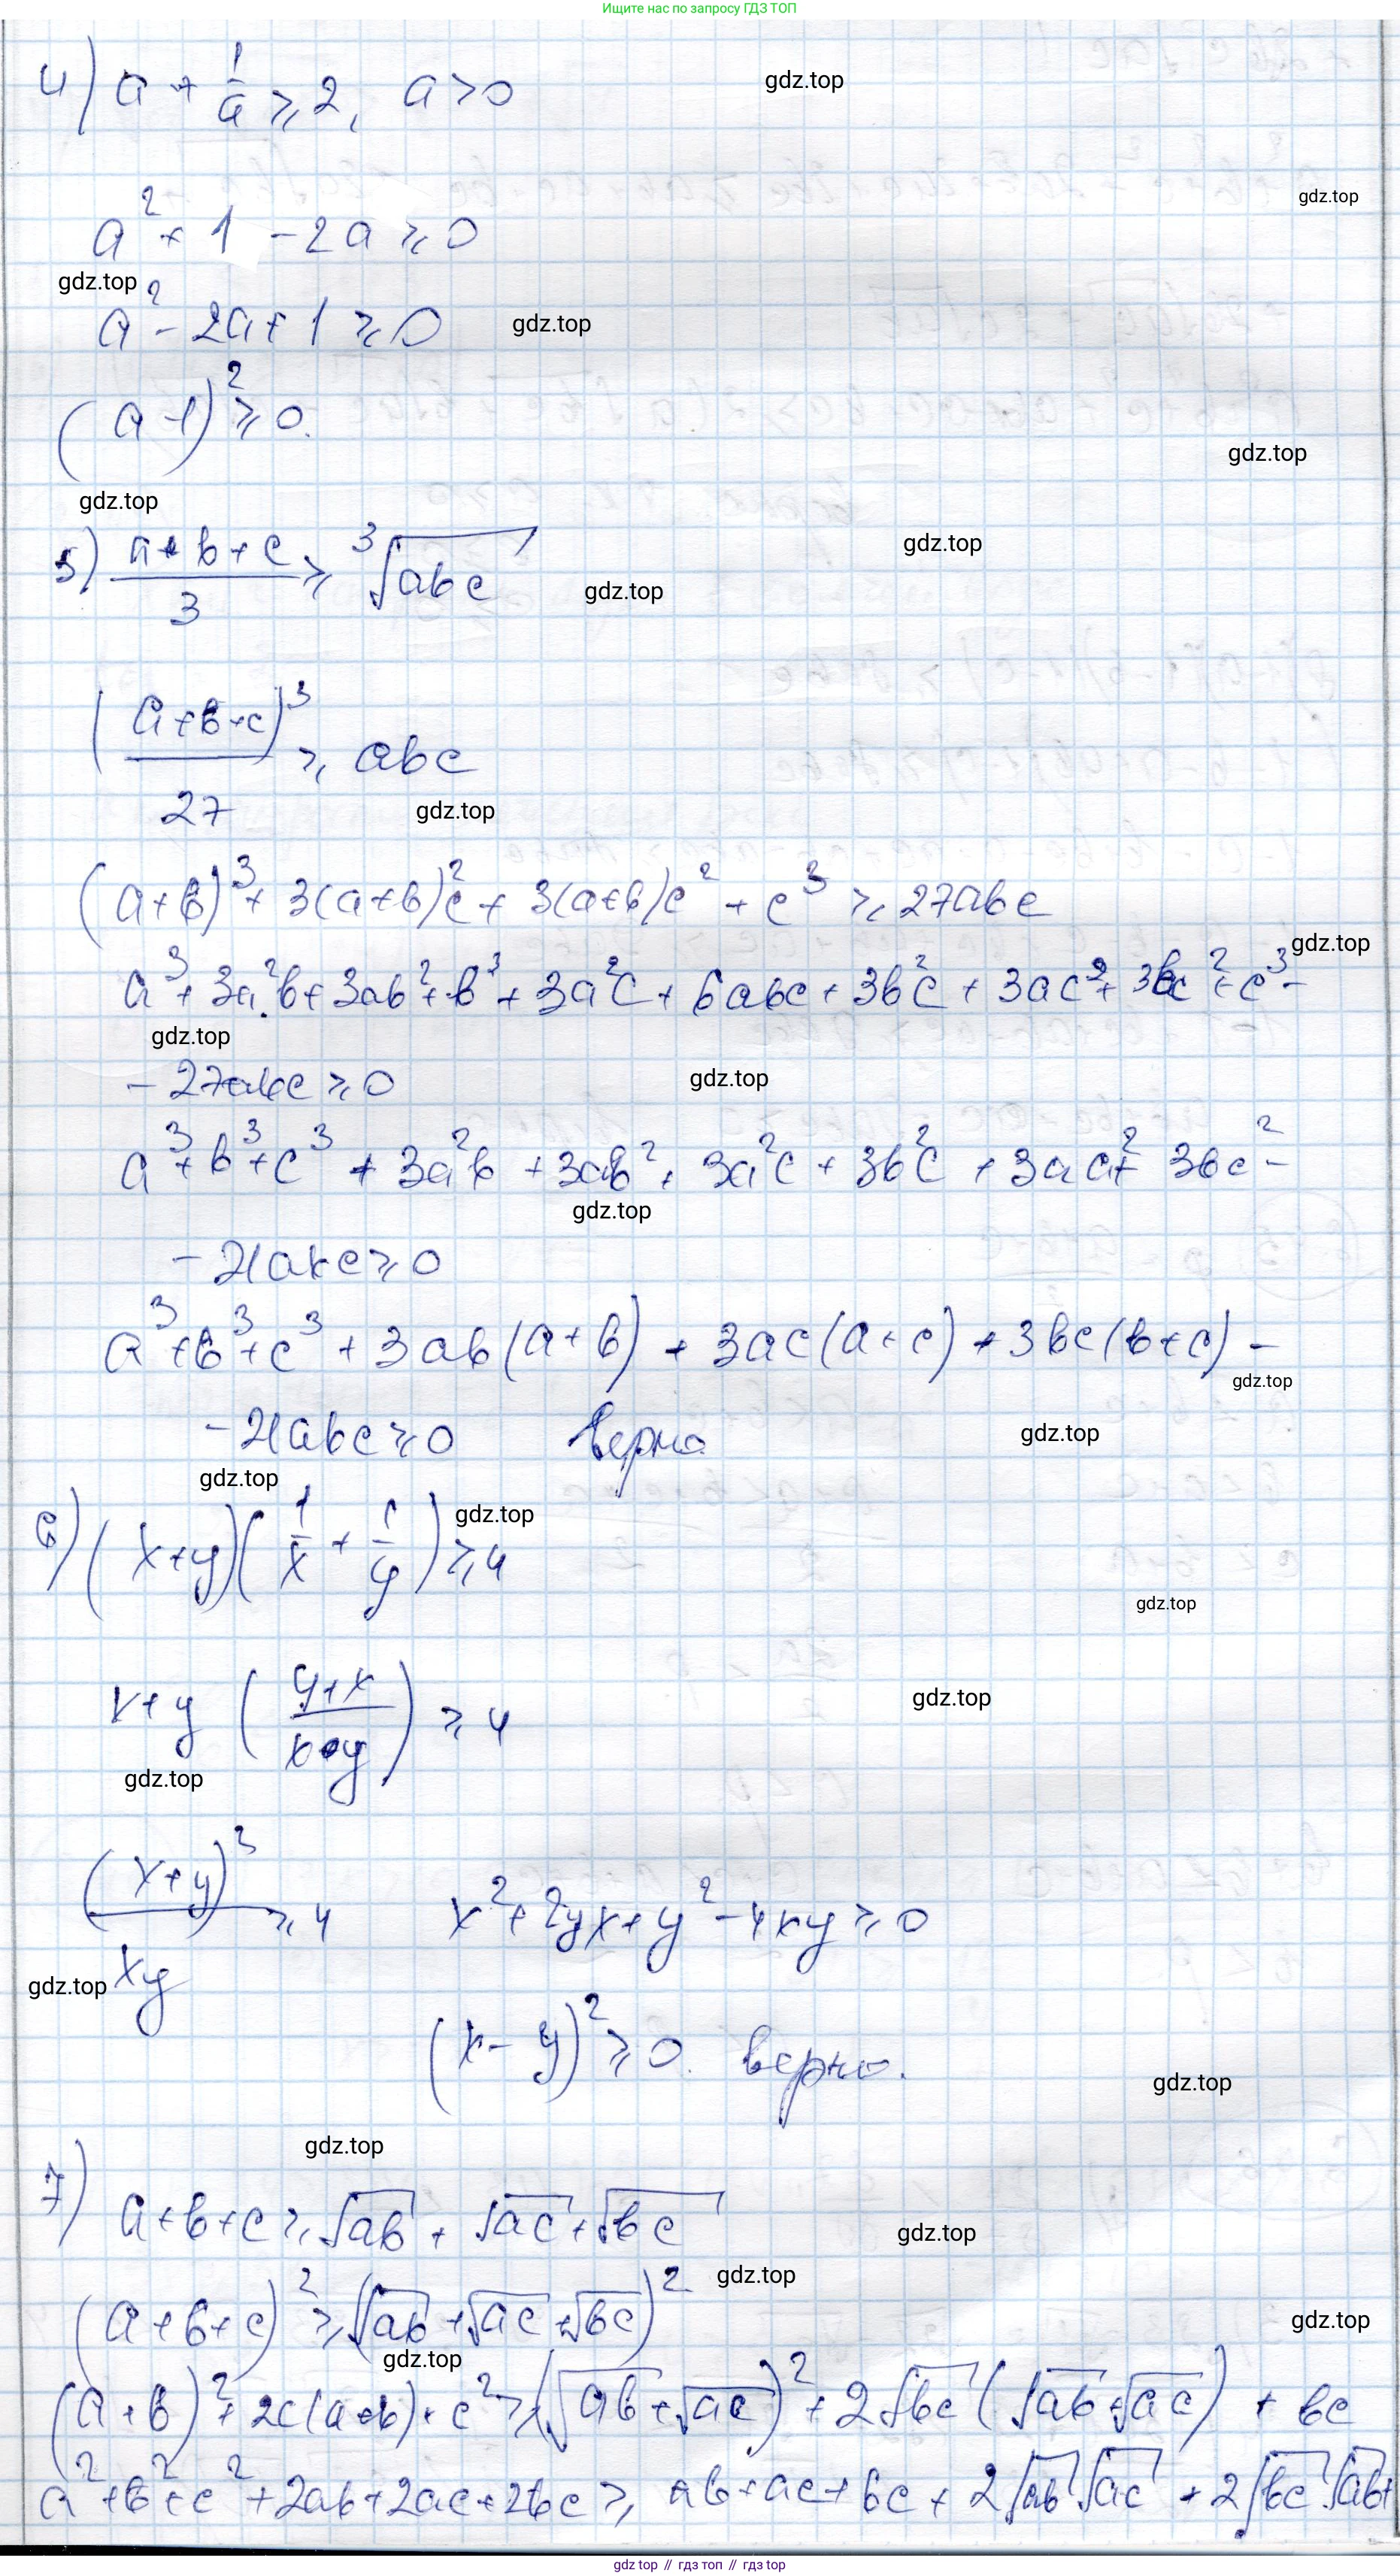 Ищите нас по запросу ГДЗ ТОП
4) a + 1/a ≥ 2, a > 0
gdz.top
gdz.top
a² + 1 - 2a ≥ 0
gdz.top
a² - 2a + 1 ≥ 0
gdz.top
(a - 1)² ≥ 0.
gdz.top
gdz.top
5) (a + b + c)/3 ≥ ³√abc
gdz.top
gdz.top
(a + b + c)³/27 ≥ abc
gdz.top
(a+b)³ + 3(a+b)²c + 3(a+b)c² + c³ ≥ 27abc
gdz.top
a³ + 3a²b + 3ab² + b³ + 3a²c + 6abc + 3b²c + 3ac² + 3bc² + c³ -
gdz.top
- 27abc ≥ 0
gdz.top
a³ + b³ + c³ + 3a²b + 3ab² + 3a²c + 3b²c + 3ac² + 3bc² -
gdz.top
- 21abc ≥ 0
a³ + b³ + c³ + 3ab(a+b) + 3ac(a+c) + 3bc(b+c) -
gdz.top
- 21abc ≥ 0 верно
gdz.top
gdz.top
6) (x+y)(1/x + 1/y) ≥ 4
gdz.top
gdz.top
x+y ((y+x)/(x•y)) ≥ 4
gdz.top
gdz.top
(x+y)²/xy ≥ 4 x² + 2yx + y² - 4xy ≥ 0
gdz.top
(x - y)² ≥ 0. верно.
gdz.top
gdz.top
7) a+b+c ≥ √ab + √ac + √bc
gdz.top
gdz.top
(a+b+c)² ≥ (√ab + √ac + √bc)²
gdz.top
gdz.top
(a+b)² + 2c(a+b) + c² ≥ (√ab + √ac)² + 2√bc (√ab + √ac) + bc
a² + b² + c² + 2ab + 2ac + 2bc ≥ ab + ac + bc + 2√ab √ac + 2√bc·√ab +
gdz top // гдз топ // gdz top